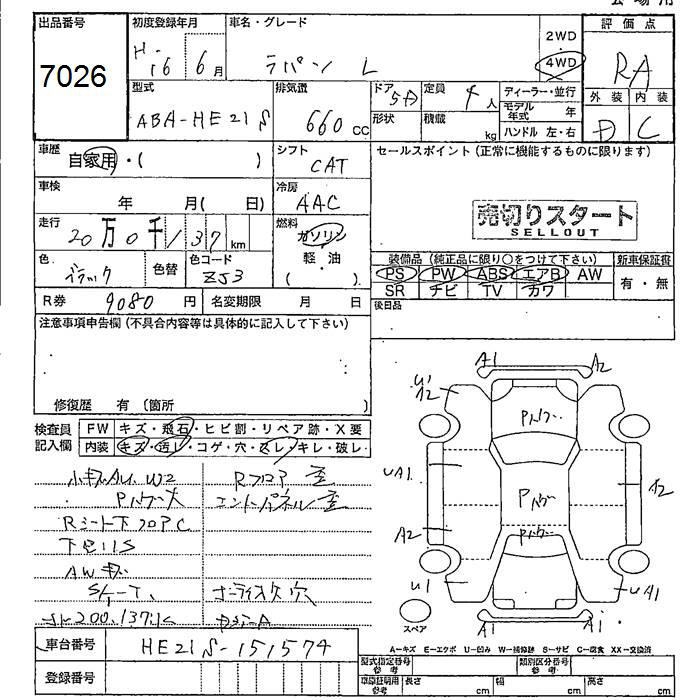 出品番号
7026
初度登録年月
H. 16 6月
車名・グレード
ラパン L
2WD
4WD
評価点
RA
外装 内装
D C
型式
ABA-HE21S
排気量
660 CC
ドア
5D
形状
定員
4人
積載
kg
ディーラー・並行
モデル年式 年
ハンドル 左・右
車歴
自家用・( )
シフト
CAT
セールスポイント(正常に機能するものに限ります)
車検
年 月( 日)
冷房
AAC
売切りスタート
SELLOUT
走行
20万0千137km
燃料
ガソリン
軽・油
( )
色
ブラック
色替
色コード
ZJ3
装備品(純正品に限り○をつけて下さい)
PS PW ABS エアB AW
SR ナビ TV カワ
新車保証書
有・無
R券 9080円
名変期限 月 日
後日品
注意事項申告欄(不具合内容等は具体的に記入して下さい)
修復歴 有(箇所 )
検査員記入欄
FW キズ・飛石・ヒビ割・リペア跡・X要
内装 キズ・汚レ・コゲ・穴・スレ・キレ・破レ
W2
Rフロア 歪
エンドパネル歪
Rシート下フロアC
下回りS
AWキズ
オーディオ欠 穴
A1
A2
U1
A2
UA1
A2
A2
U1
UA1
A1
A1
スペア
A—キズ E—エクボ U—凹み W—補修跡 S—サビ C—腐食 XX—交換済
車台番号 HE21S-151574
登録番号
型式指定番号 参考
類別区分番号 参考
車庫証明用 参考
長さ cm 幅 cm 高さ cm